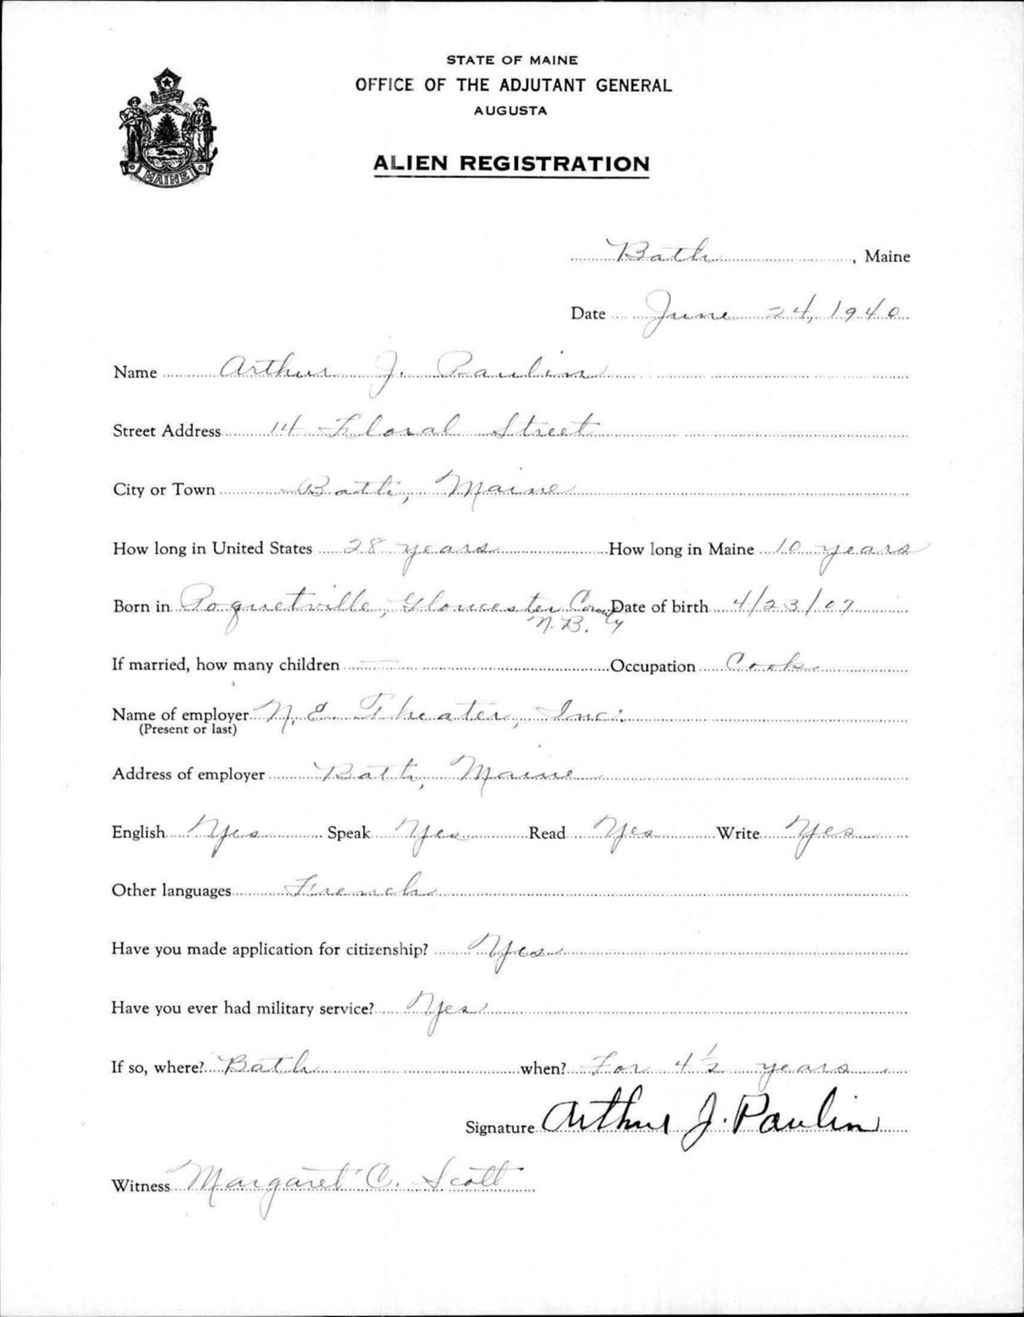 STATE OF MAINE
OFFICE OF THE ADJUTANT GENERAL
AUGUSTA
ALIEN REGISTRATION
MAINE
Bath, Maine
Date June 24, 1940
Name Arthur J. Paulin
Street Address 14 Floral Street
City or Town Bath, Maine
How long in United States 28 years How long in Maine 10 years
Born in Poquetville, Gloucester County N.B. Date of birth 4/23/07
If married, how many children — Occupation Cook
Name of employer N. E. Theater, Inc.
(Present or last)
Address of employer Bath, Maine
English Yes Speak Yes Read Yes Write Yes
Other languages French
Have you made application for citizenship? Yes
Have you ever had military service? Yes
If so, where? Bath when? For 4 1/2 years
Signature Arthur J. Paulin
Witness Margaret C. Scott